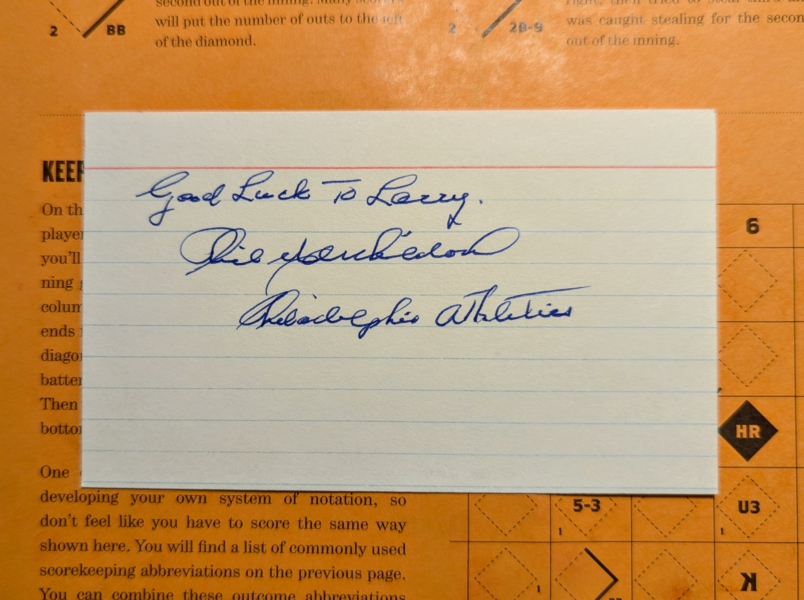 second out of the inning. Many
will put the number of outs to the left
of the diamond.
2 BB
right, then tried to steal third
was caught stealing for the second
out of the inning.
2 2B-9
KEEP
Good Luck To Larry.
Phil Marchildon
Philadelphia Athletics
On th
player
you'll
ning
colum
ends
diago
batter
Then
botto
One
developing your own system of notation, so
don't feel like you have to score the same way
shown here. You will find a list of commonly used
scorekeeping abbreviations on the previous page.
You can combine these outcome abbreviations
6
HR
5-3
1
U3
1
1
K